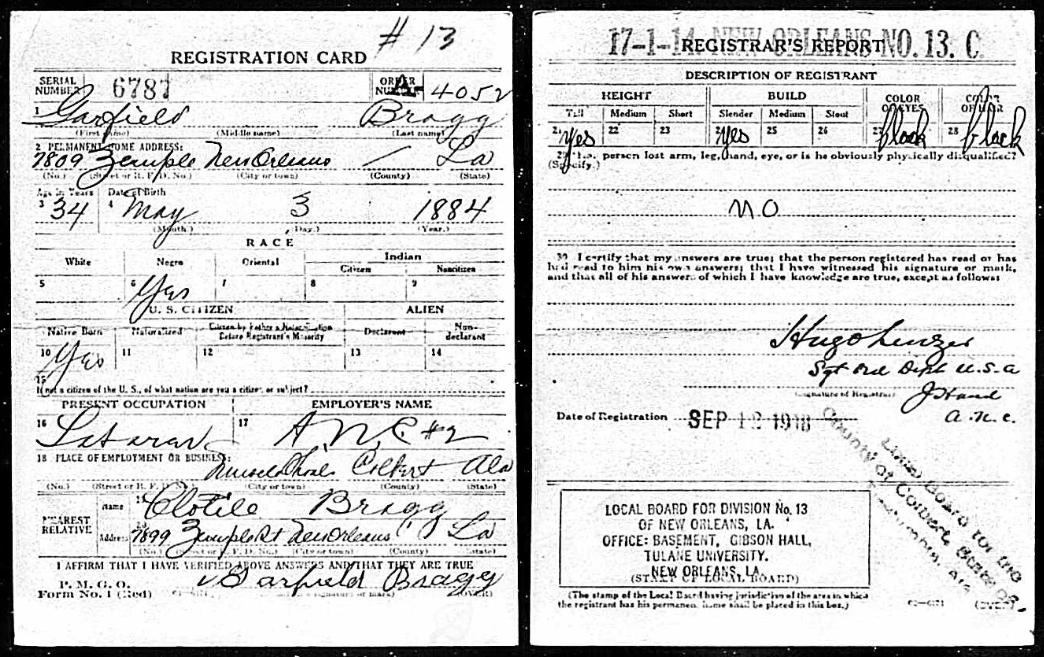 # 13
REGISTRATION CARD
SERIAL NUMBER 6787 ORDER NUMBER A 4052
1 Garfield Bragg
(First name) (Middle name) (Last name)
2 PERMANENT HOME ADDRESS:
7809 Zemple New Orleans / La
(No.) (Street or R. F. D. No.) (City or town) (County) (State)
Age in Years Date of Birth
3 34 4 May 3 1884
(Month.) (Day.) (Year.)
RACE
White Negro Oriental Indian
Citizen Noncitizen
5 6 Yes 7 8 9
U. S. CITIZEN ALIEN
Native Born Naturalized Citizen by Father's Naturalization Before Registrant's Majority Declarant Non-declarant
10 Yes 11 12 13 14
15
If not a citizen of the U. S., of what nation are you a citizen or subject?
PRESENT OCCUPATION EMPLOYER'S NAME
16 17 A N C #2
18 PLACE OF EMPLOYMENT OR BUSINESS:
Colbert Ala
(No.) (Street or R. F. D. No.) (City or town) (County) (State)
NEAREST RELATIVE Name 19 Clotile Bragg
Address 20 7899 Zemple St New Orleans La
(No.) (Street or R. F. D. No.) (City or town) (County) (State)
I AFFIRM THAT I HAVE VERIFIED ABOVE ANSWERS AND THAT THEY ARE TRUE
P. M. G. O.
Form No. 1 (Red) Garfield Bragg
(Registrant's signature or mark) (OVER)
17-1-14 NEW ORLEANS NO. 13. C
REGISTRAR'S REPORT
DESCRIPTION OF REGISTRANT
HEIGHT BUILD COLOR OF EYES COLOR OF HAIR
Tall Medium Short Slender Medium Stout
21 Yes 22 23 24 Yes 25 26 27 black 28 black
29 Has person lost arm, leg, hand, eye, or is he obviously physically disqualified?
(Specify.)
no
30 I certify that my answers are true; that the person registered has read or has
had read to him his own answers; that I have witnessed his signature or mark,
and that all of his answers of which I have knowledge are true, except as follows:
Hugo
Sgt Ord Dept U.S.A
(Signature of Registrar)
A.N.C.
Date of Registration SEP 12 1918
Local Board for the
County of Colbert, State of
Tuscumbia, Ala
LOCAL BOARD FOR DIVISION No. 13
OF NEW ORLEANS, LA.
OFFICE: BASEMENT, GIBSON HALL,
TULANE UNIVERSITY.
NEW ORLEANS, LA.
(STAMP OF LOCAL BOARD)
(The stamp of the Local Board having jurisdiction of the area in which
the registrant has his permanent home shall be placed in this box.)
(OVER)